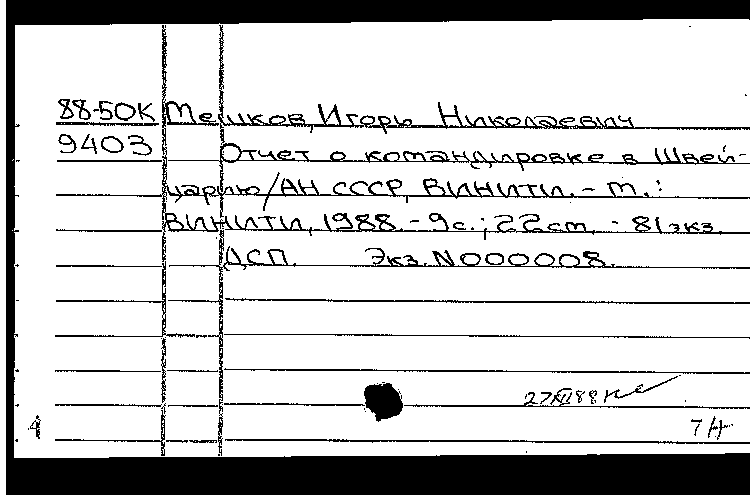 88-50К Мешков, Игорь Николаевич
9403 Отчет о командировке в Швей-
царию / АН СССР, ВИНИТИ. - М.:
ВИНИТИ, 1988. - 9 с.; 22 см. - 81 экз.
ДСП. Экз. N000008.
27 XII 88
4
7